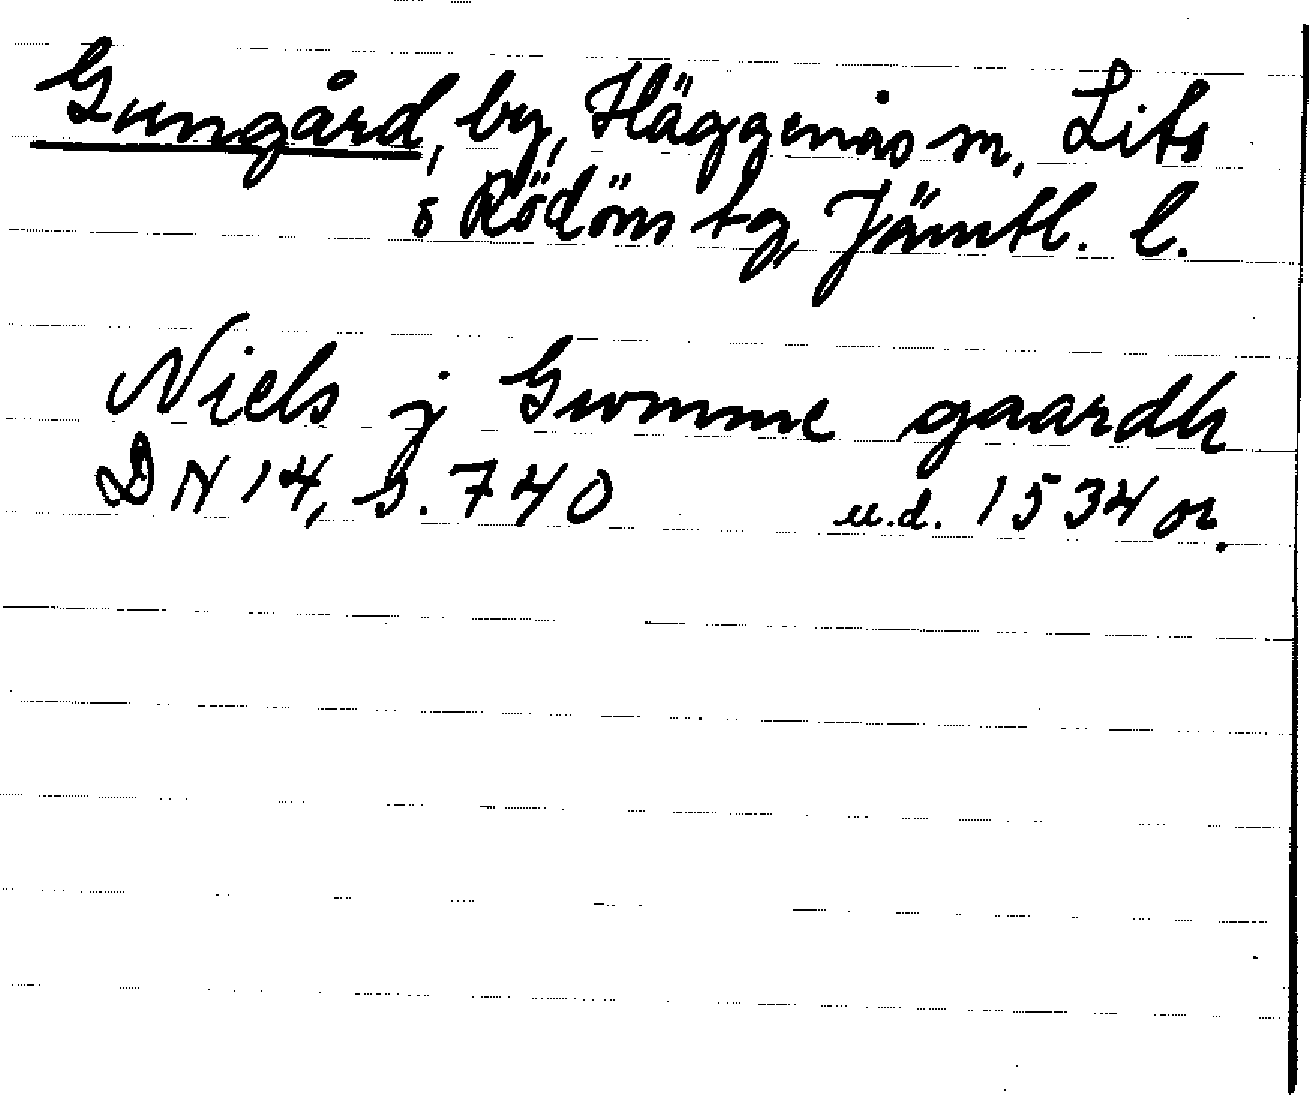 Gungård, by, Häggenås sn, Lits
o Rödöns tg, Jämtl. l.
Niels j Gwnnne gaardh
DN 14, s. 740 u.d. 1534 or.